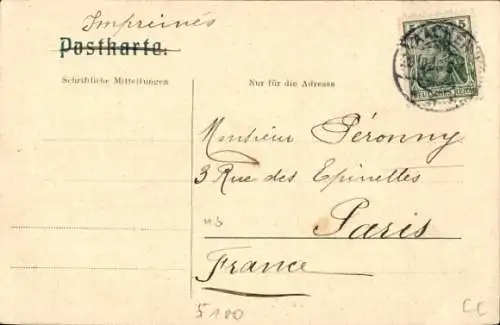 Impreinés
Postkarte.
Schriftliche Mitteilungen
Nur für die Adresse
5
AACHEN
DEUTSCHES REICH
Monsieur Péronny
3 Rue des Epinettes
Paris
France
5180
CC